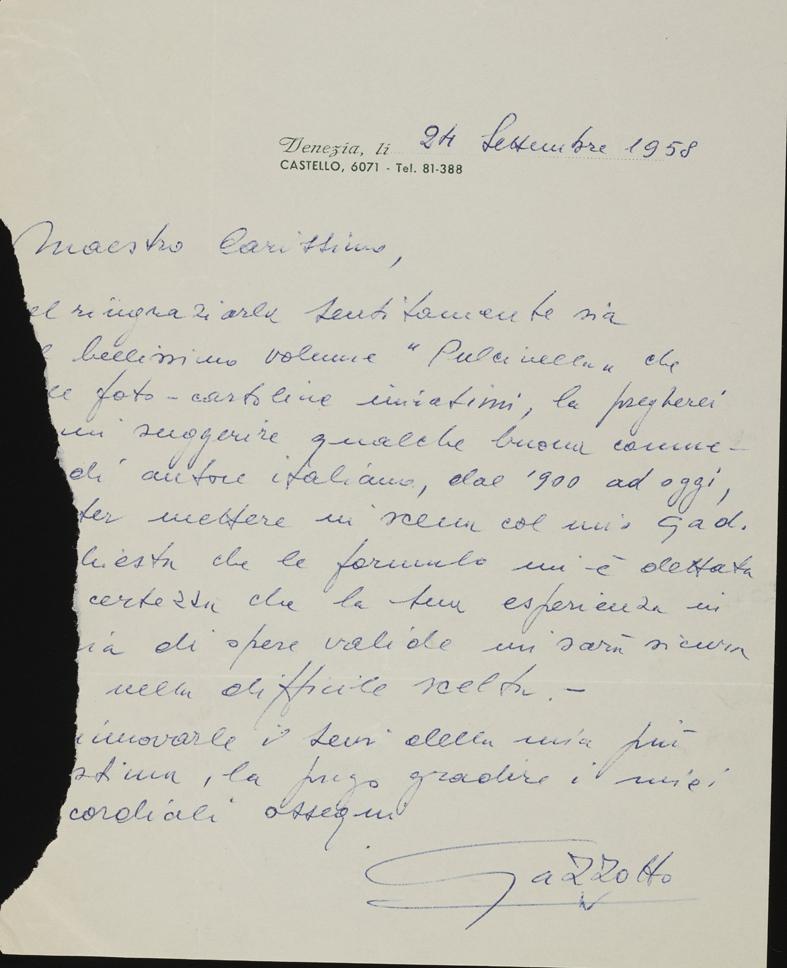 Venezia, li 24 Settembre 1958
CASTELLO, 6071 - Tel. 81-388
Maestro Carissimo,
el ringraziarla sentitamente sia
l bellissimo volume "Pulcinella" che
le foto-cartoline inviatimi, la pregherei
mi suggerire qualche buona comme-
di autore italiano, dal '900 ad oggi,
ter mettere in scena col mio Gad.
hiesta che le formulo mi è dettata
certezza che la sua esperienza in
ria di opere valide mi sarà sicura
nella difficile scelta.-
innovarle i sensi della mia più
stima, la prego gradire i miei
cordiali ossequi
Gazzotto